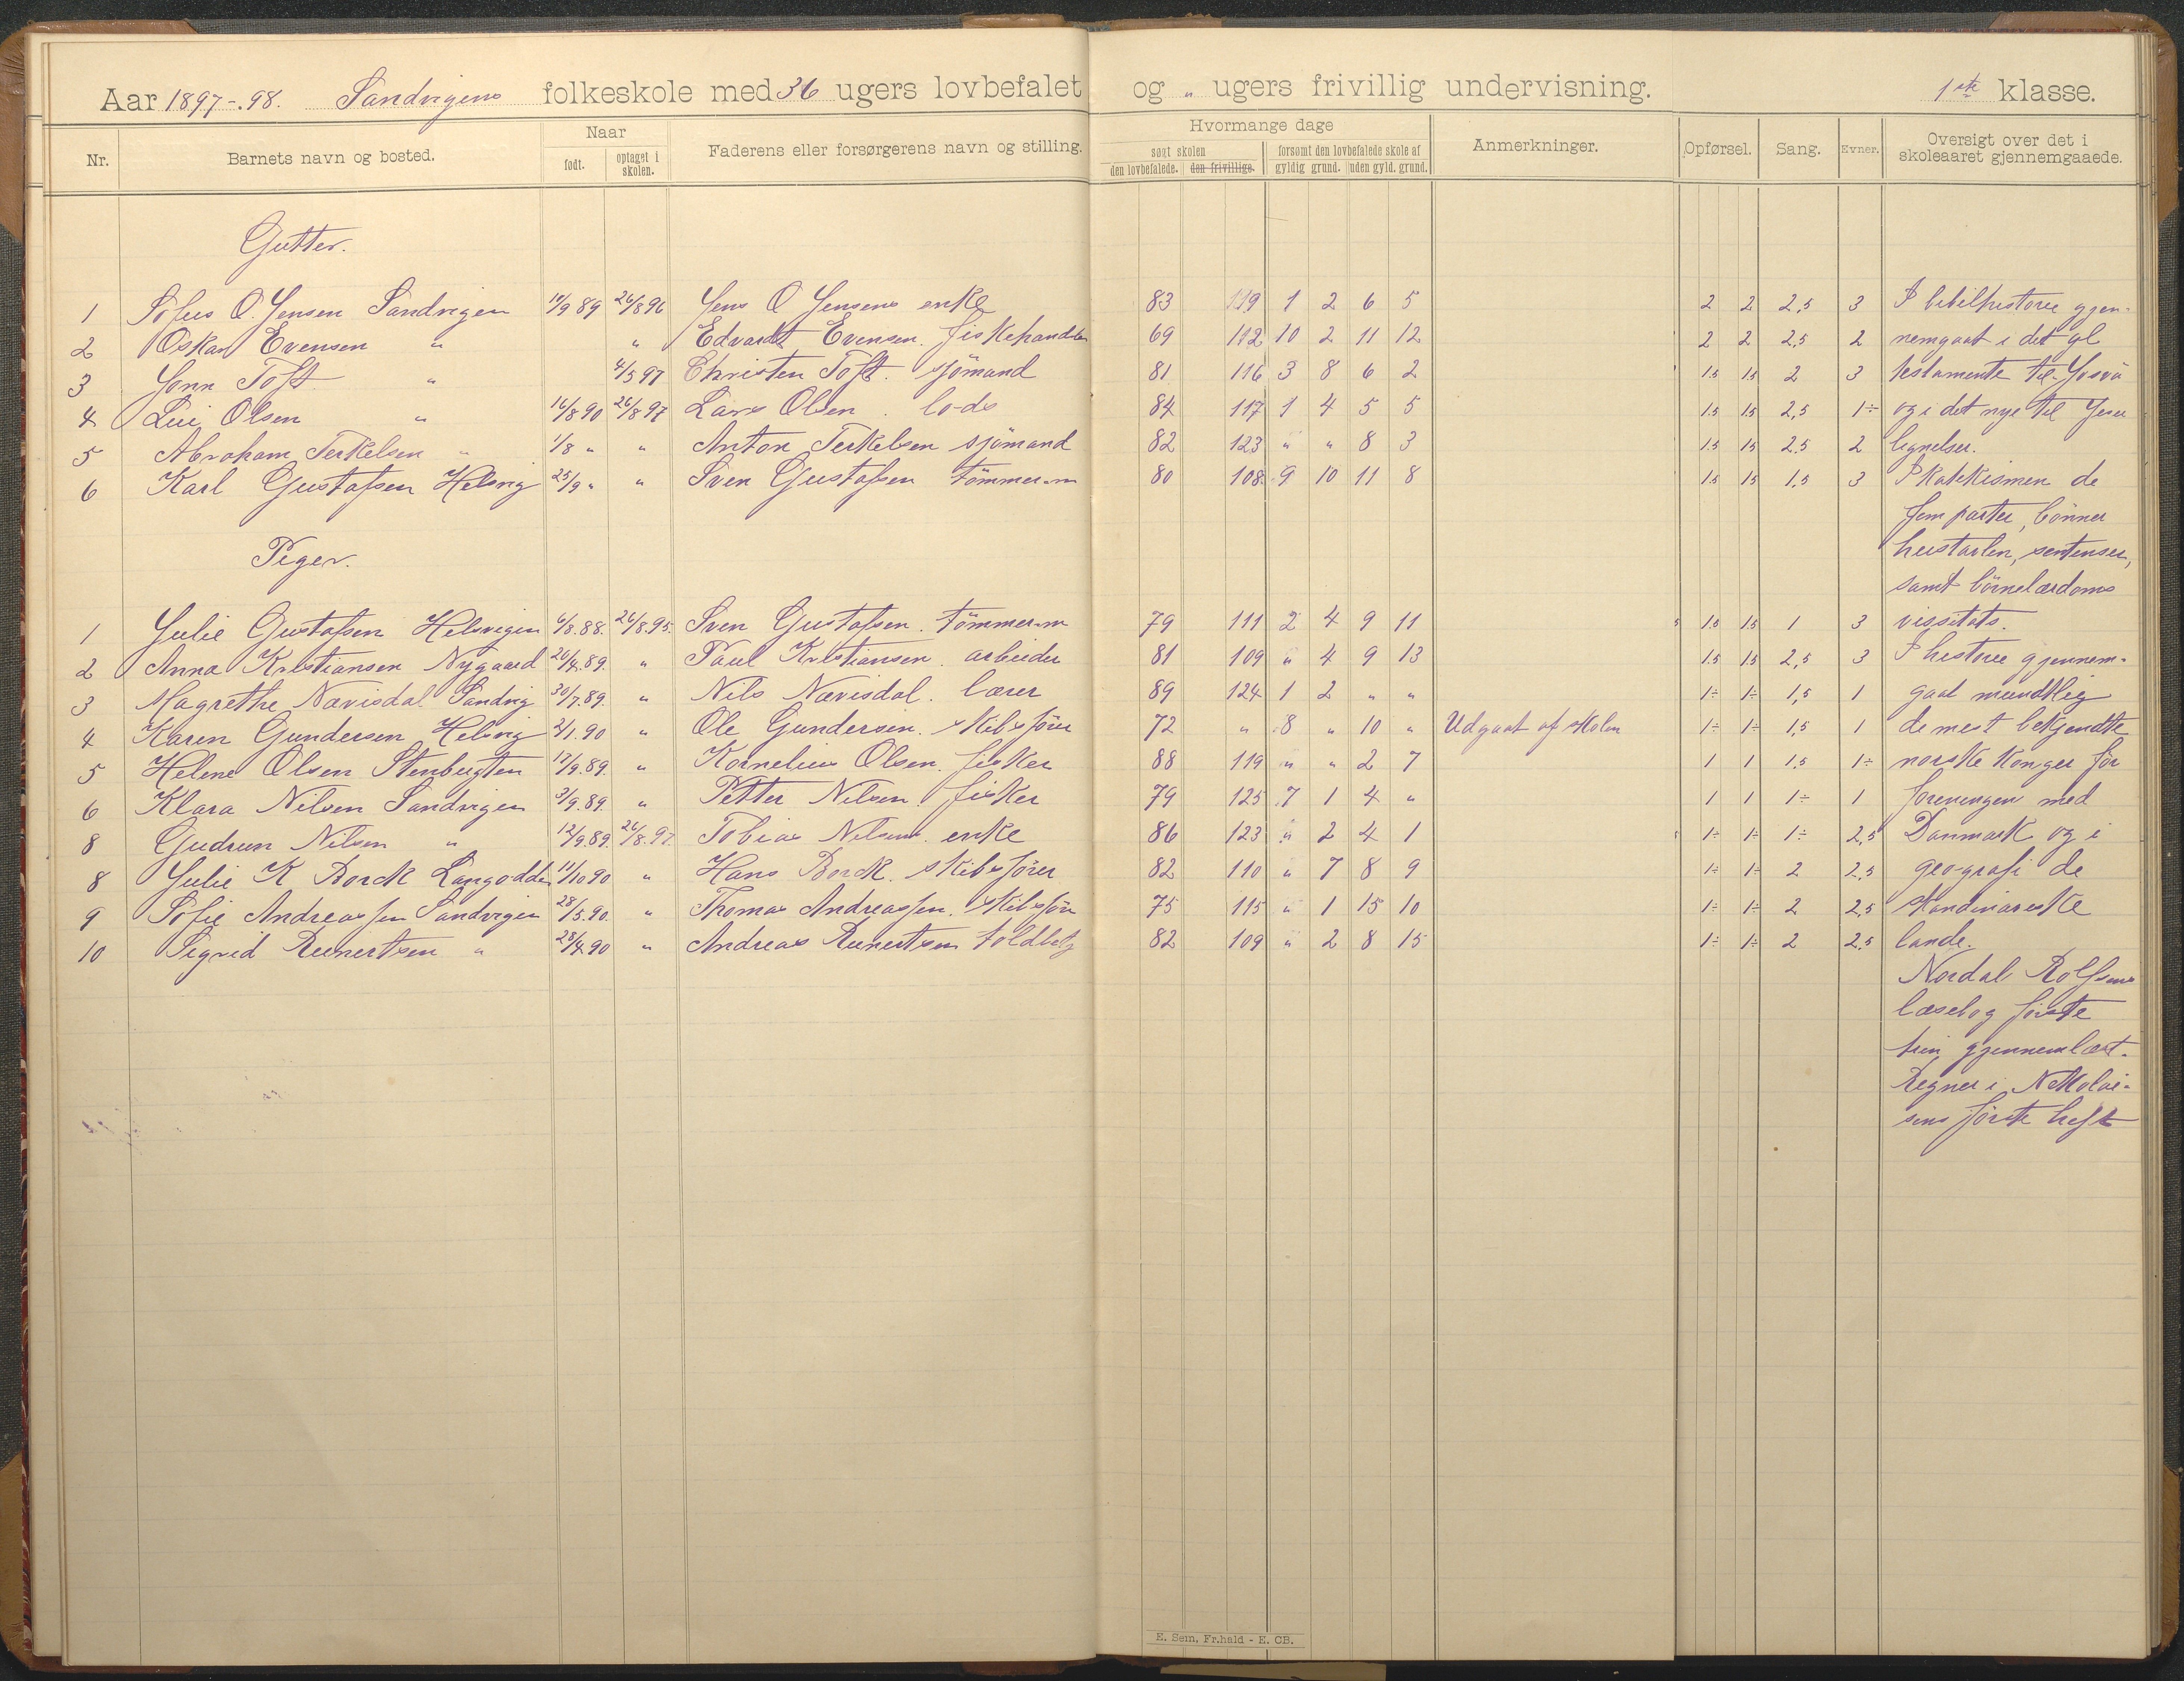 Aar 1897-98. Sandvigens folkeskole med 36 ugers lovbefalet og " ugers frivillig undervisning. 1ste klasse.
Nr. Barnets navn og bosted. Naar født. optaget i skolen. Faderens eller forsørgerens navn og stilling. Hvormange dage søgt skolen den lovbefalede. den frivillige. forsømt den lovbefalede skole af gyldig grund. uden gyld. grund. Anmerkninger. Opførsel. Sang. Evner. Oversigt over det i skoleaaret gjennemgaaede.
Gutter.
1 Sofus O. Jensen Sandvigen 19/9 89 26/8 96 Jens O Jensens enke 83 119 1 2 6 5 2 2 2,5 3 I bibelhistorie gjen-
2 Oskar Evensen " " Edvardt Evensen. fiskehandler 69 112 10 2 11 12 2 2 2,5 2 nemgaat i det gl
3 Jonn Toft " 4/5 97 Christen Toft. sjömand 81 116 3 8 6 2 1.5 1.5 2 3 testamente til Josva
4 Lui Olsen " 16/8 90 26/8 97 Lars Olsen. lods 84 117 1 4 5 5 1.5 1.5 2,5 1÷ og i det nye til Jesu
5 Abraham Terkelsen " 1/8 " " Anton Terkelsen sjömand 82 123 " " 8 3 1.5 1.5 2.5 2 lignelser.
6 Karl Gustafsen Helsvig 25/9 " " Sven Gustafsen tömmerm 80 108 9 10 11 8 1.5 1.5 1.5 3 I katekismen de
fem parter, bönner
hustavlen, sentenser,
samt börnelærdoms
Piger.
1 Julie Gustafsen Helsvigen 6/8. 88. 26/8. 95. Sven Gustafsen. tömmerm 79 111 2 4 9 11 1.5 1.5 1 3 visitats.
2 Anna Kristiansen Nygaard 26/4. 89. " Paul Kristiansen. arbeider 81 109 " 4 9 13 1.5 1.5 2,5 3 I historie gjennem-
3 Magrethe Nævisdal Sandvig 30/7. 89. " Nils Nævisdal. lærer 89 124 1 2 " " 1÷ 1÷ 1,5 1 gaat mundtlig
4 Karen Gundersen Helsvig 2/1. 90 " Ole Gundersen. skibsfører 72 " 8 " 10 " Udgaat af skolen 1÷ 1÷ 1,5 1 de mest bekjendte
5 Helene Olsen Stenbugten 17/9. 89. " Kornelius Olsen. fisker 88 119 " " 2 7 1 1 1.5 1÷ norske konger för
6 Klara Nilsen Sandvigen 3/9. 89. " Petter Nilsen. fisker 79 125 7 1 4 " 1 1 1÷ 1 foreningen med
8 Gudrun Nilsen " 12/9. 89. 26/8. 97. Tobias Nilsens enke 86 123 " 2 4 1 1÷ 1÷ 1÷ 2,5 Danmark og i
8 Julie K Borck Langodden 11/10 90 " Hans Borck. skibsfører 82 110 " 7 8 9 1÷ 1÷ 2 2.5 geografi de
9 Sofie Andreassen Sandvigen 28/5. 90. " Thomas Andreassen. skibsför 75 115 " 1 15 10 1÷ 1÷ 2 2,5 skandinaviske
10 Sigrid Reinertsen " 28/4. 90 " Andreas Reinertsen toldbetj 82 109 " 2 8 15 1÷ 1÷ 2 2.5 lande.
Nordal Rolfsens
læsebog förste
trin gjennemlæst.
Regnet i Nikolai-
sens förste hefte
E. Sem, Fr.hald - E. CB.